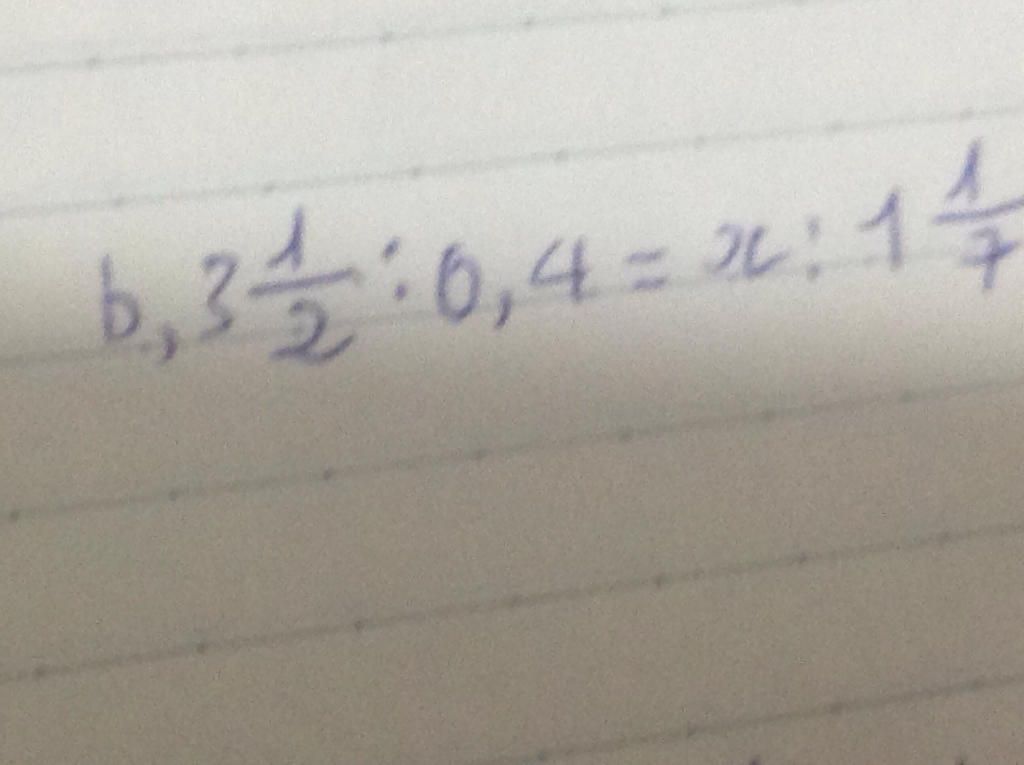 b, 3 1/2 : 0,4 = x : 1 1/7